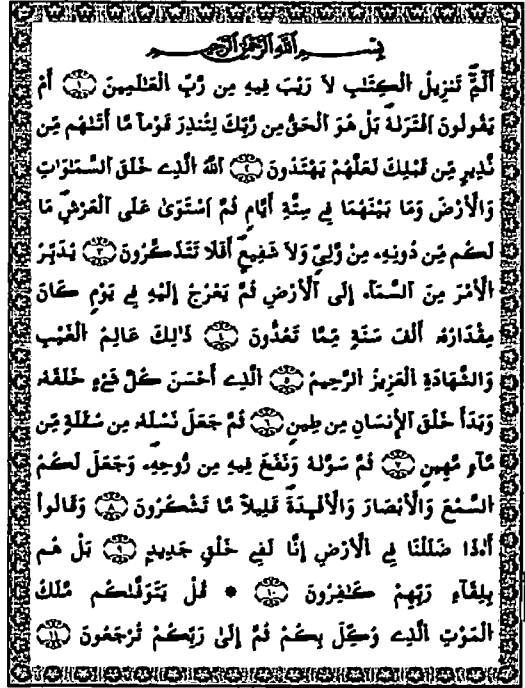 بِسْمِ اللَّهِ الرَّحْمَٰنِ الرَّحِيمِ
أَلَمِّ تَنزِيلُ الْكِتَٰبِ لاَ رَيْبَ فِيهِ مِن رَّبِّ الْعَٰلَمِينَ ١ أَمْ
يَقُولُونَ اَفْتَرَىٰهُ بَلْ هُوَ الْحَقُّ مِن رَّبِّكَ لِتُنذِرَ قَوْماً مَّا أَتَىٰهُم مِّن
نَّذِيرٍ مِّن قَبْلِكَ لَعَلَّهُمْ يَهْتَدُونَ ٢ اَللَّهُ الَّذِے خَلَقَ السَّمَٰوَٰتِ
وَالْأَرْضَ وَمَا بَيْنَهُمَا فِے سِتَّةِ أَيَّامٍ ثُمَّ اَسْتَوَىٰ عَلَى الْعَرْشِ مَا
لَكُم مِّن دُونِهِۦ مِنْ وَّلِيٍّ وَلاَ شَفِيعٍ أَفَلاَ تَتَذَكَّرُونَ ٣ يُدَبِّرُ
الْأَمْرَ مِنَ السَّمَآءِ إِلَى اَلْأَرْضِ ثُمَّ يَعْرُجُ إِلَيْهِ فِے يَوْمٍ كَانَ
مِقْدَارُهُۥ أَلْفَ سَنَةٍ مِّمَّا تَعُدُّونَ ٤ ذَٰلِكَ عَٰلِمُ الْغَيْبِ
وَالشَّهَٰدَةِ الْعَزِيزُ الرَّحِيمُ ٥ الَّذِے أَحْسَنَ كُلَّ شَےْءٍ خَلَقَهُۥ
وَبَدَأَ خَلْقَ اَلْإِنسَٰنِ مِن طِينٍ ٦ ثُمَّ جَعَلَ نَسْلَهُۥ مِن سُلَٰلَةٍ مِّن
مَّآءٍ مَّهِينٍ ٧ ثُمَّ سَوَّىٰهُ وَنَفَخَ فِيهِ مِن رُّوحِهِۦ وَجَعَلَ لَكُمُ
السَّمْعَ وَالْأَبْصَٰرَ وَالْأَفْـِٕدَةَ قَلِيلاً مَّا تَشْكُرُونَ ٨ وَقَالُواْ
أَ.ذَا ضَلَلْنَا فِے اَلْأَرْضِ إِنَّا لَفِے خَلْقٍ جَدِيدٍ ٩ بَلْ هُم
بِلِقَآءِ رَبِّهِمْ كَٰفِرُونَ ١٠ * قُلْ يَتَوَفَّىٰكُم مَّلَكُ
الْمَوْتِ الَّذِے وُكِّلَ بِكُمْ ثُمَّ إِلَىٰ رَبِّكُمْ تُرْجَعُونَ ١١